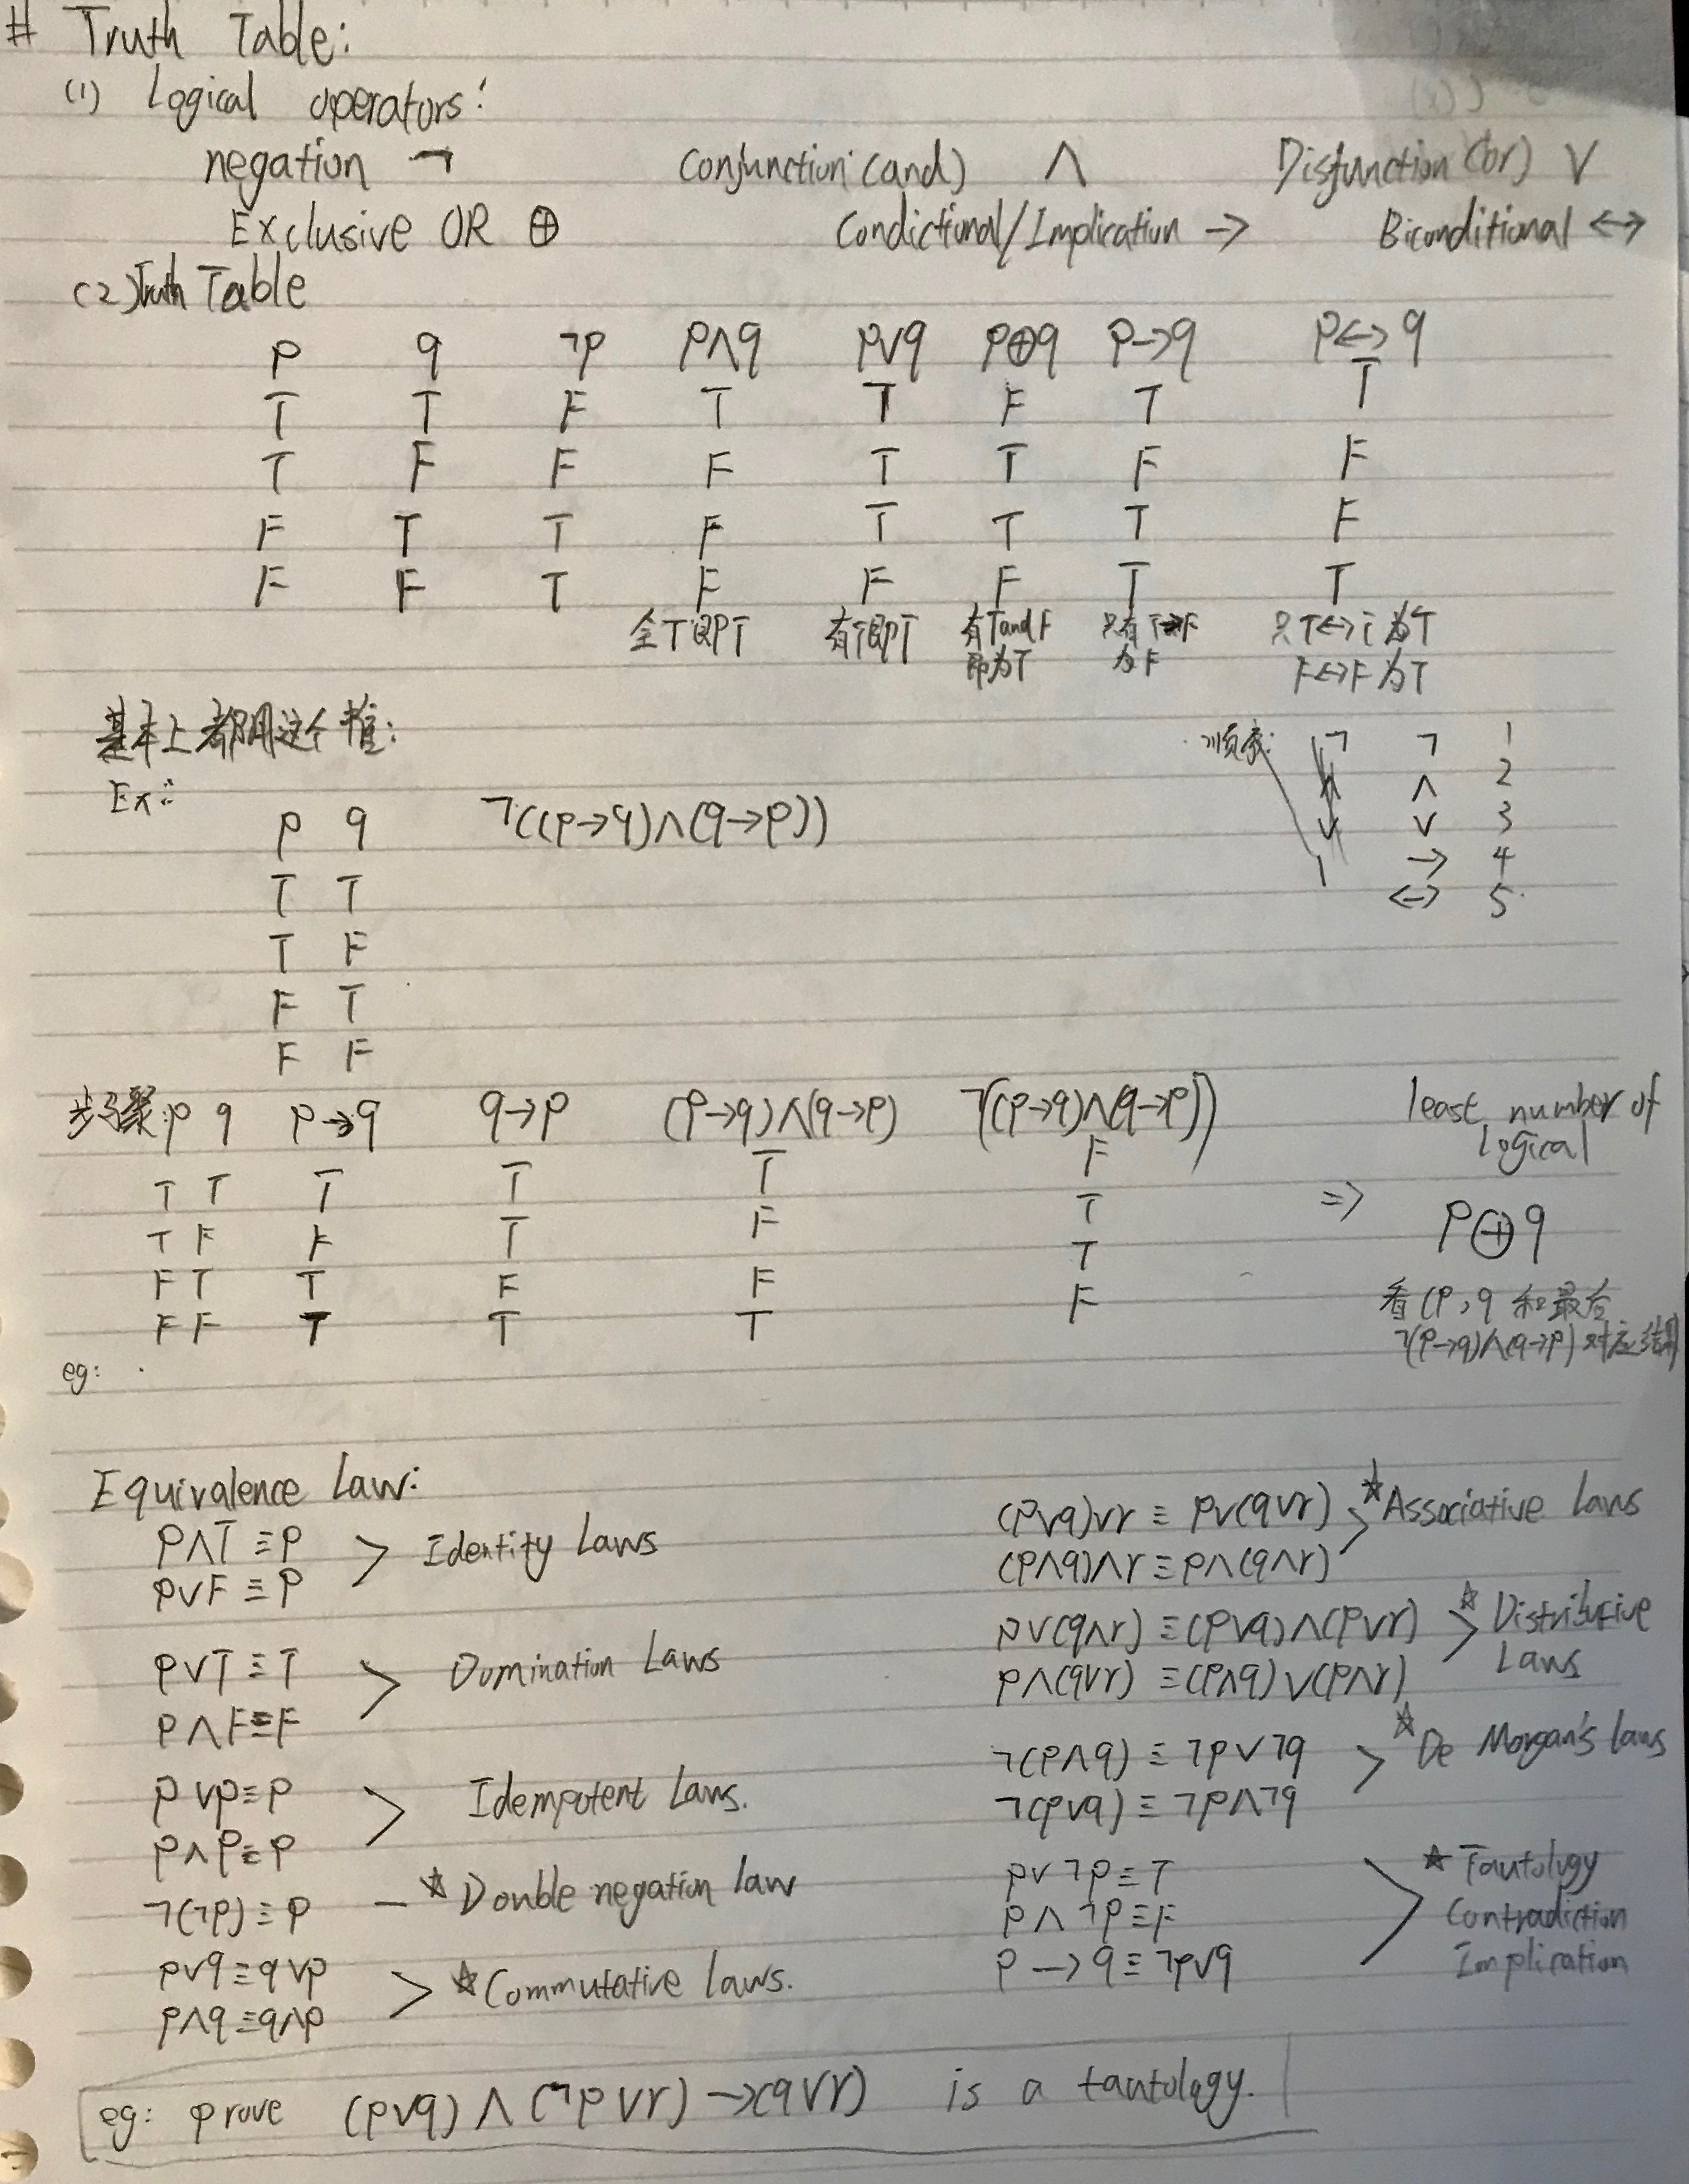 # Truth Table:
(1) Logical operators:
negation ¬ Conjunction (and) ∧ Disjunction (or) ∨
Exclusive OR ⊕ Condictional/Implication → Biconditional ↔
(2) Truth Table
p q ¬p p∧q p∨q p⊕q p→q p↔q
T T F T T F T T
T F F F T T F F
F T T F T T T F
F F T F F F T T
全T即T 有T即T 有T and F 只有T→F 只T↔T为T
即为T 为F F↔F为T
基本上都用这个推:
顺序: ¬ ¬ 1
∧ ∧ 2
∨ ∨ 3
→ 4
↔ 5
Ex:
p q ¬((p→q)∧(q→p))
T T
T F
F T
F F
步骤: p q p→q q→p (p→q)∧(q→p) ¬((p→q)∧(q→p))
T T T T T F
T F F T F T
F T T F F T
F F T T T F
least number of
logical
⇒ p⊕q
看(p,q和最后
¬(p→q)∧(q→p)对应结果
eg:
Equivalence Law:
p∧T≡p
p∨F≡p > Identity Laws
p∨T≡T
p∧F≡F > Domination Laws
p∨p≡p
p∧p≡p > Idempotent Laws.
¬(¬p)≡p — ☆ Double negation law
p∨q≡q∨p
p∧q≡q∧p > ☆ Commutative laws.
(p∨q)∨r≡p∨(q∨r)
(p∧q)∧r≡p∧(q∧r) > ☆ Associative laws
p∨(q∧r)≡(p∨q)∧(p∨r)
p∧(q∨r)≡(p∧q)∨(p∧r) > ☆ Distributive
Laws
¬(p∧q)≡¬p∨¬q
¬(p∨q)≡¬p∧¬q > ☆ De Morgan's laws
p∨¬p≡T ☆ Tautology
p∧¬p≡F > Contradiction
p→q≡¬p∨q Implication
eg: prove (p∨q)∧(¬p∨r)→(q∨r) is a tautology.